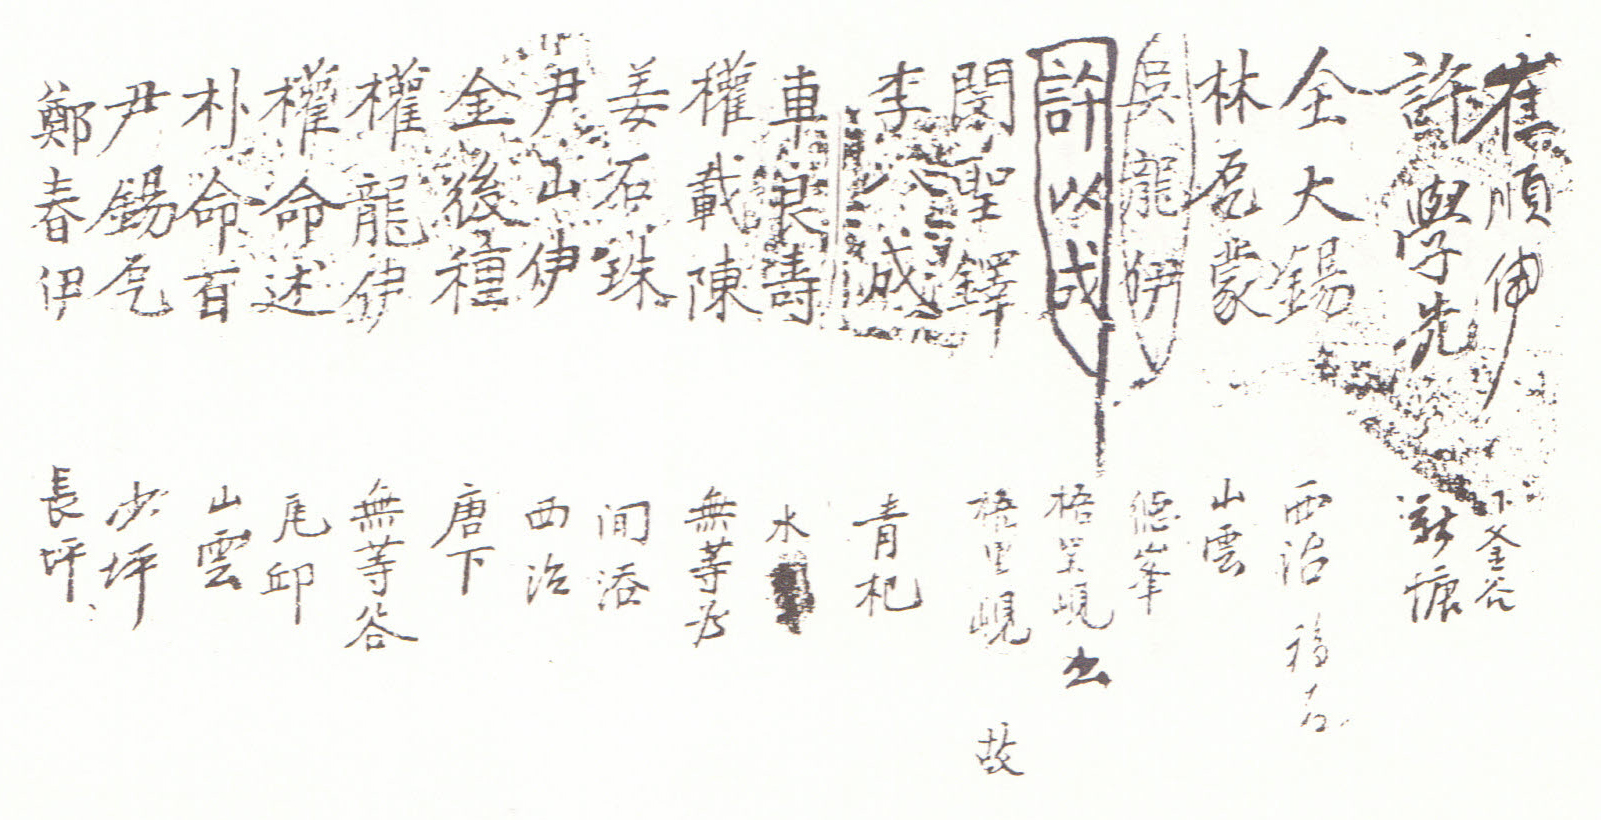 崔順伊 下釜谷
許學先
全大錫 西治 移左
林磊蒙 山雲
吳龍伊 德峯
許以成 梧里峴 出
閔聖鐸 梧里峴 故
李 成 青杞
車良壽 水
權載陳 無等谷
姜石珠 间添
尹山伊 西治
金後種 唐下
權龍伊 無等谷
權命述 尾邱
朴命百 山雲
尹錫 少坪
鄭春伊 長坪